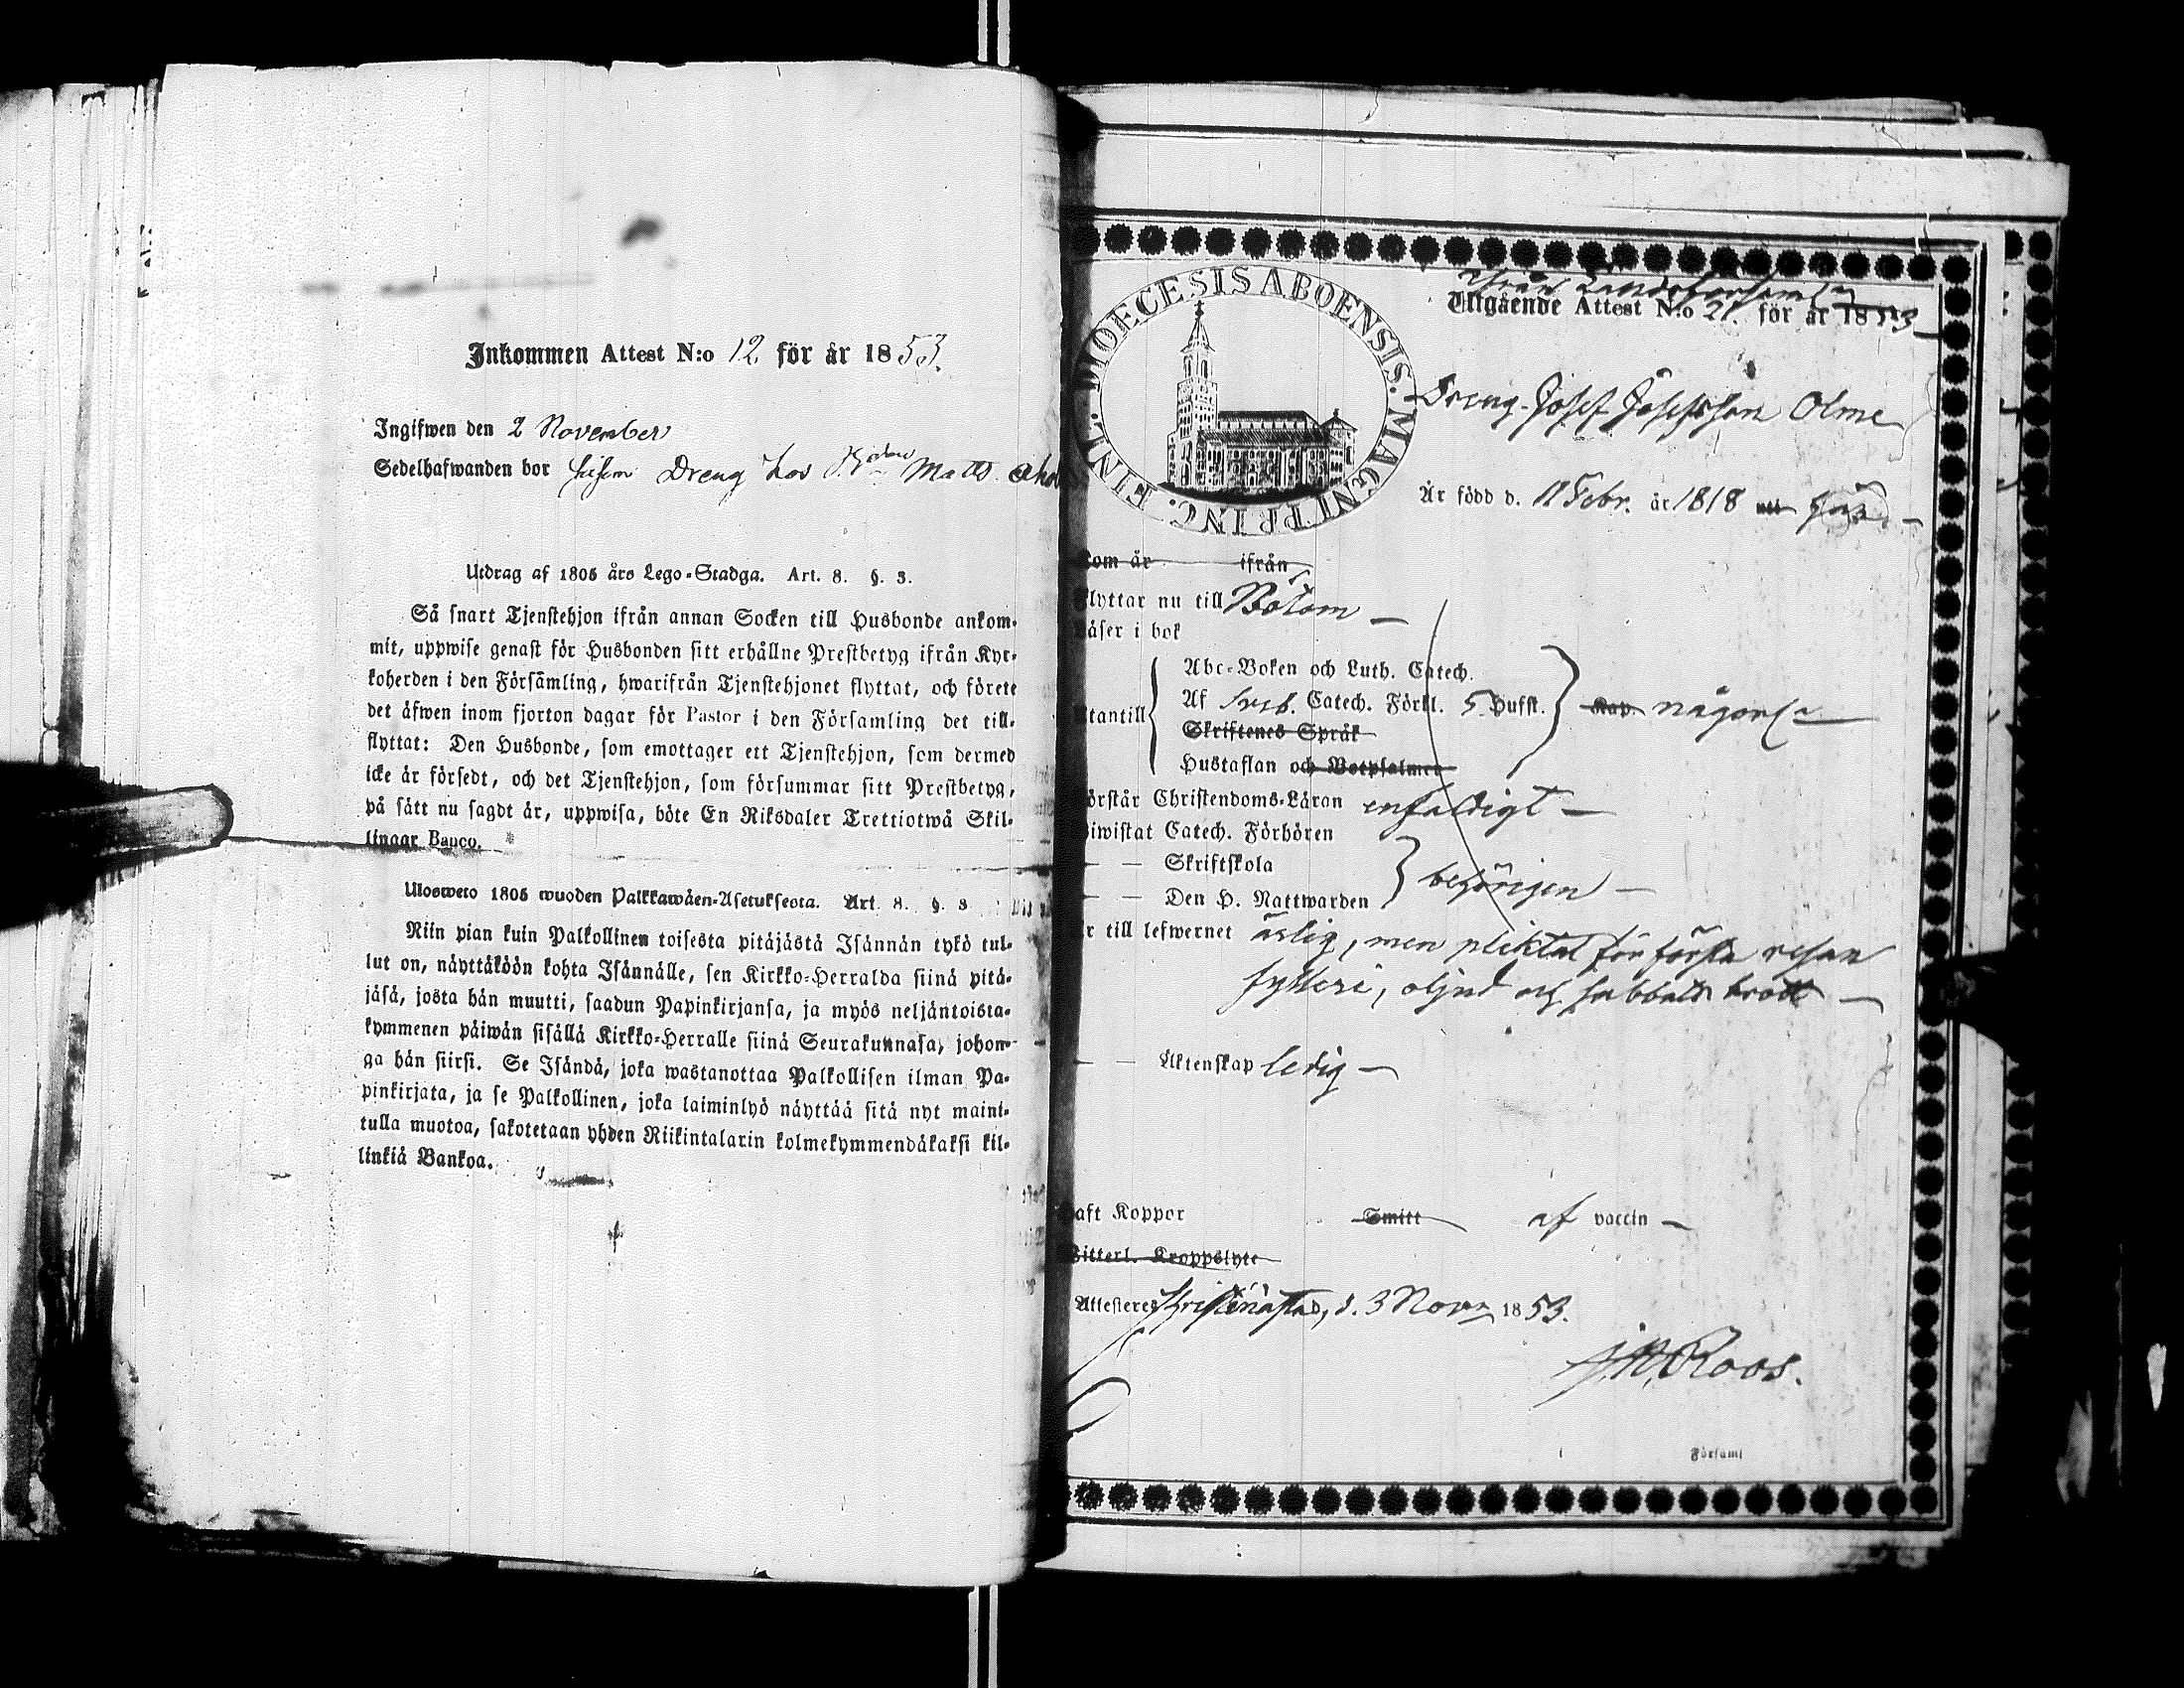 Inkommen Attest N:o 12 för år 1853.
Ingifwen den 2 November
Sedelhafwanden bor såsom Dreng hos Matts
Utdrag af 1805 års Lego-Stadga. Art. 8. §. 3.
Så snart Tjenstehjon ifrån annan Socken till Husbonde ankom-
mit, uppwise genast för Husbonden sitt erhållne Prestbetyg ifrån Kyr-
koherden i den Församling, hwarifrån Tjenstehjonet flyttat, och förete
det äfwen inom fjorton dagar för Pastor i den Församling det till-
flyttat: Den Husbonde, som emottager ett Tjenstehjon, som dermed
icke är försedt, och det Tjenstehjon, som försummar sitt Prestbetyg,
på sätt nu sagdt är, uppwisa, böte En Riksdaler Trettiotwå Skil-
lingar Banco.
Ulosweto 1805 wuoden Palkkawäen-Asetuksesta. Art. 8. §. 3
Niin pian kuin Palkollinen toisesta pitäjästä Isännän tykö tul-
lut on, näyttäköön kohta Isännälle, sen Kirkko-Herralda siinä pitä-
jäsä, josta hän muutti, saadun Papinkirjansa, ja myös neljäntoista-
kymmenen päiwän sisällä Kirkko-Herralle siinä Seurakunnasa, johon-
ga hän siirsi. Se Isändä, joka wastanottaa Palkollisen ilman Pa-
pinkirjata, ja se Palkollinen, joka laiminlyö näyttää sitä nyt maini-
tulla muotoa, sakotetaan yhden Riikintalarin kolmekymmendäkaksi kil-
linkiä Bankoa.
DIOECESIS ABOENSIS. MAGNI PRINC. FINL.
ifrån Landsförsaml
Utgående Attest N:o 21. för år 1853
Dreng Josef Josefsson Olme
Är född d. 11 Febr. år 1818
kom år ifrån
flyttar nu till Bötom
läser i bok
Abc-Boken och Luth. Catech.
utantill Af Catech. Förkl. 5 Hufst. Kap. någorl
Skriftenes Språk
Hustaflan och Botpsalmer
förstår Christendoms-Läran enfaldigt
biwistat Catech. Förhören
Skriftskola
behörigen
Den H. Nattwarden
är till lefwernet ärlig, men pliktat för första resan
fylleri, oljud och sabbatsbrott
Äktenskap ledig
haft Koppor Smitt af vaccin
Witterl. Kroppslyte
Attesteres Christinæstad, d. 3 Novr 1853.
Roos.
Församl